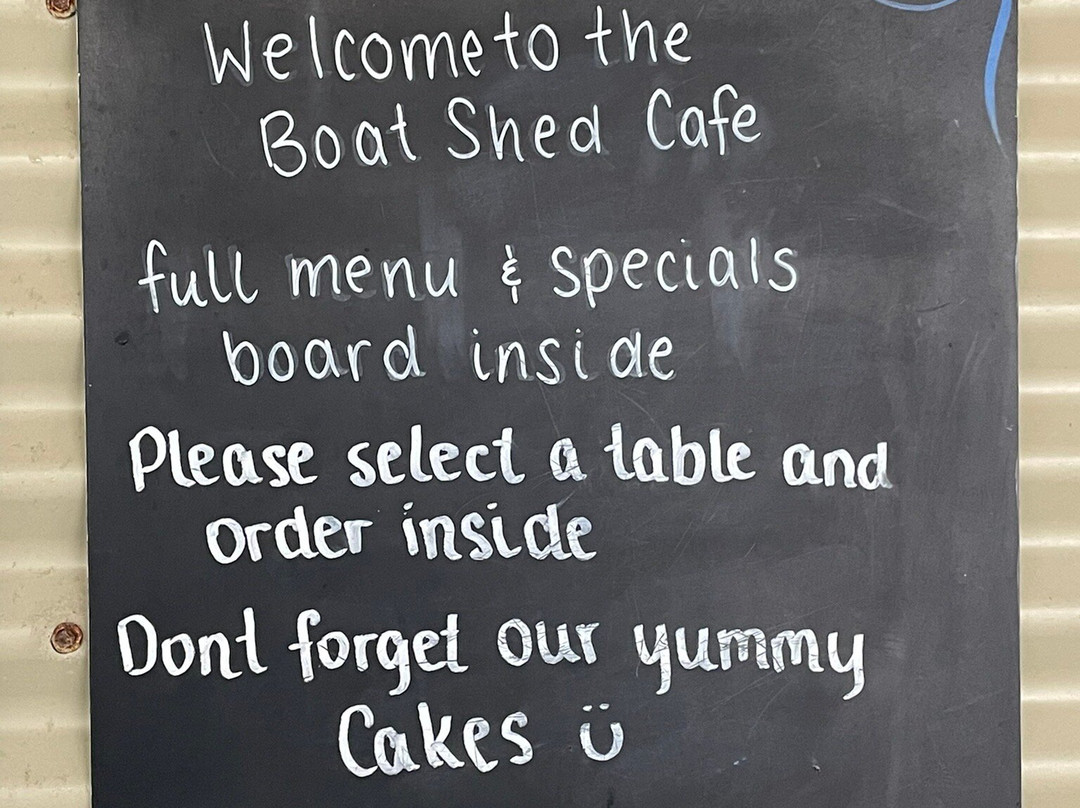 Welcome to the
Boat Shed Cafe
full menu & specials
board inside
Please select a table and
order inside
Dont forget our yummy
Cakes ü